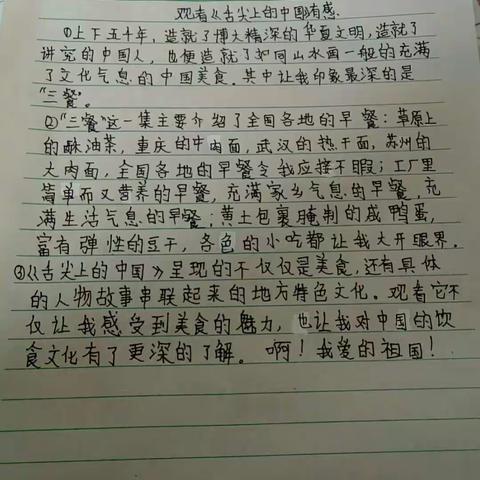 观看《舌尖上的中国》有感
①上下五千年，造就了博大精深的华夏文明，造就了
讲究的中国人，也便造就了如同山水画一般的充满
了文化气息的中国美食。其中让我印象最深的是
“三餐”。
②“三餐”这一集主要介绍了全国各地的早餐：草原上
的酥油茶，重庆的牛肉面，武汉的热干面，苏州的
大肉面，全国各地的早餐令我应接不暇；工厂里
简单而又营养的早餐，充满家乡气息的早餐，充
满生活气息的早餐；黄土包裹腌制的咸鸭蛋，
富有弹性的豆干，各色的小吃都让我大开眼界。
③《舌尖上的中国》呈现的不仅仅是美食，还有具体
的人物故事串联起来的地方特色文化。观看它不
仅让我感受到美食的魅力，也让我对中国的饮
食文化有了更深的了解。啊！我爱的祖国！